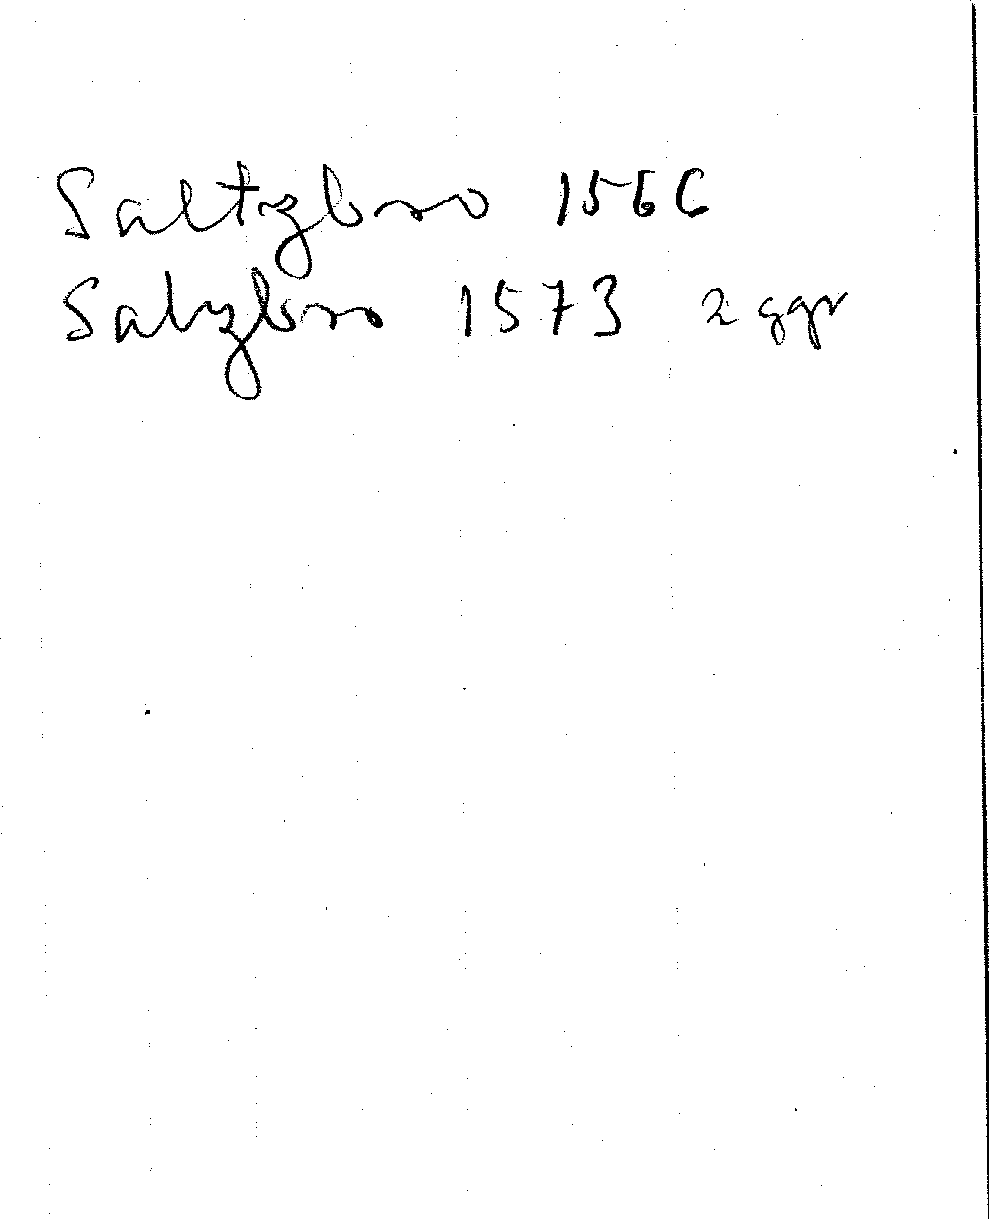 Saltzbro 1566
Salyzbro 1573 2 ggr